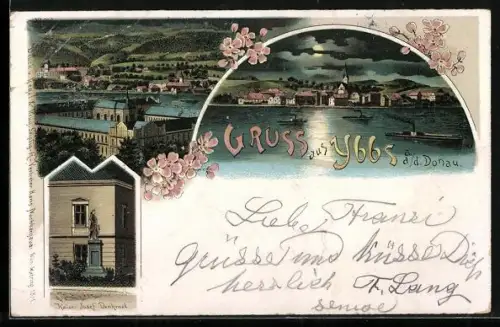 Gruss aus Ybbs
a/d. Donau.
Kaiser Josef Denkmal
Liebe Franzi
grüsse und küsse Dich
herzlich F. Lang